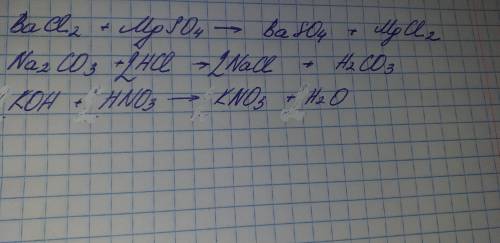 BaCl2 + MgSO4 → BaSO4 + MgCl2
Na2CO3 + 2HCl → 2NaCl + H2CO3
KOH + HNO3 → KNO3 + H2O